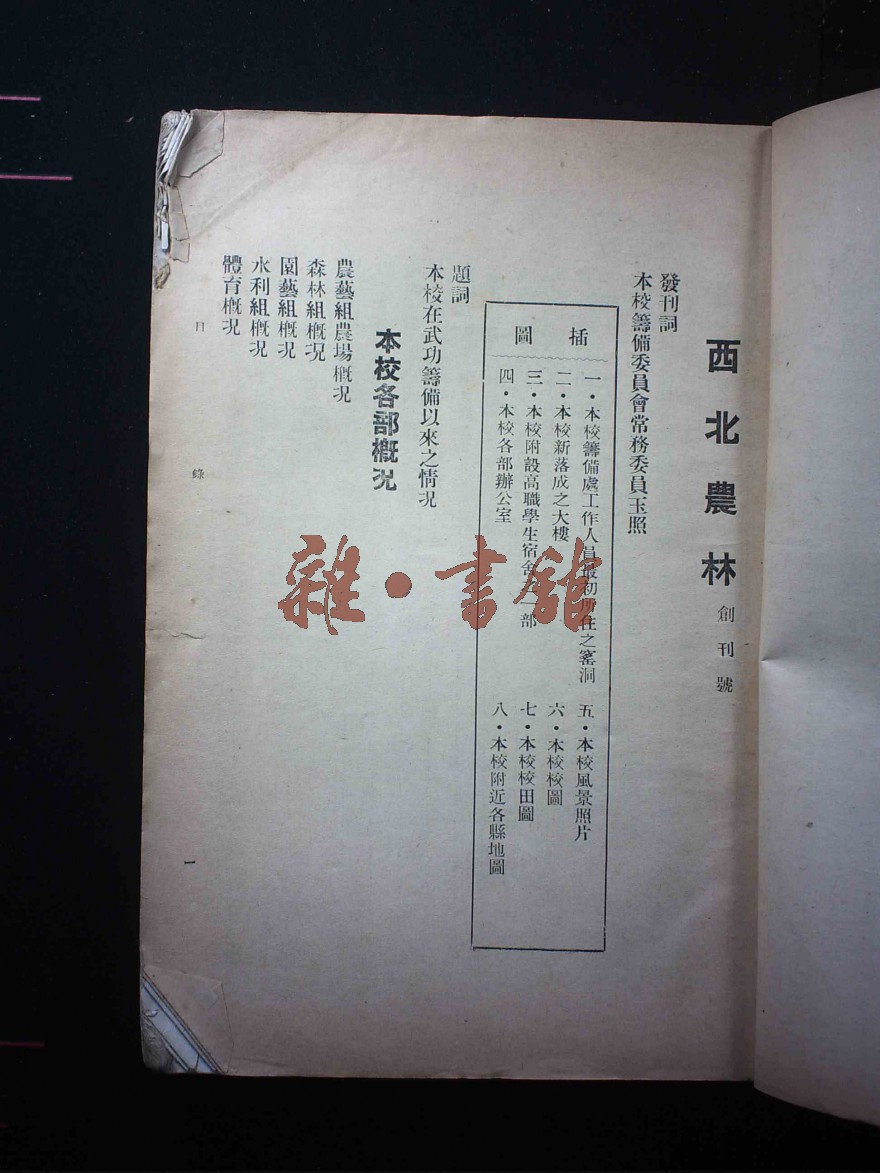 西北農林 創刊號
發刊詞
本校籌備委員會常務委員玉照
插圖
一・本校籌備處工作人員最初所住之窰洞
二・本校新落成之大樓
三・本校附設高職學生宿舍之一部
四・本校各部辦公室
五・本校風景照片
六・本校校圖
七・本校校田圖
八・本校附近各縣地圖
題詞
本校在武功籌備以來之情況
本校各部概況
農藝組農場概況
森林組概況
園藝組概況
水利組概況
體育概況
目錄
一
雜・書館